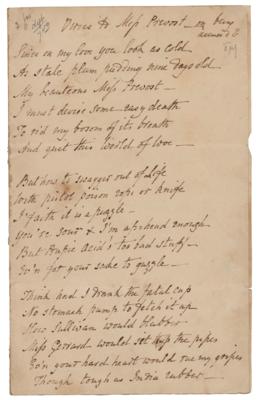 Verses to Miss Prevost – on being
accused of
Since on my love you look as cold
As stale plum pudding nine days old
My beauteous Miss Prevost –
I must devise some easy death
To rid my bosom of its breath
And quit this world of love –
But how to swagger out of life
With pistol poison rope or knife
I'faith it is a puzzle –
You're sour & I'm a'p head enough
But Prussic Acid's too bad stuff
Ev'n for your sake to guzzle –
Think and I drank the fatal cup
No stomach pump to fetch it up
How Sullivan would blubber
Miss Gerrard would set up the pipes
E'en your hard heart would rue my gripes
Though tough as India rubber –